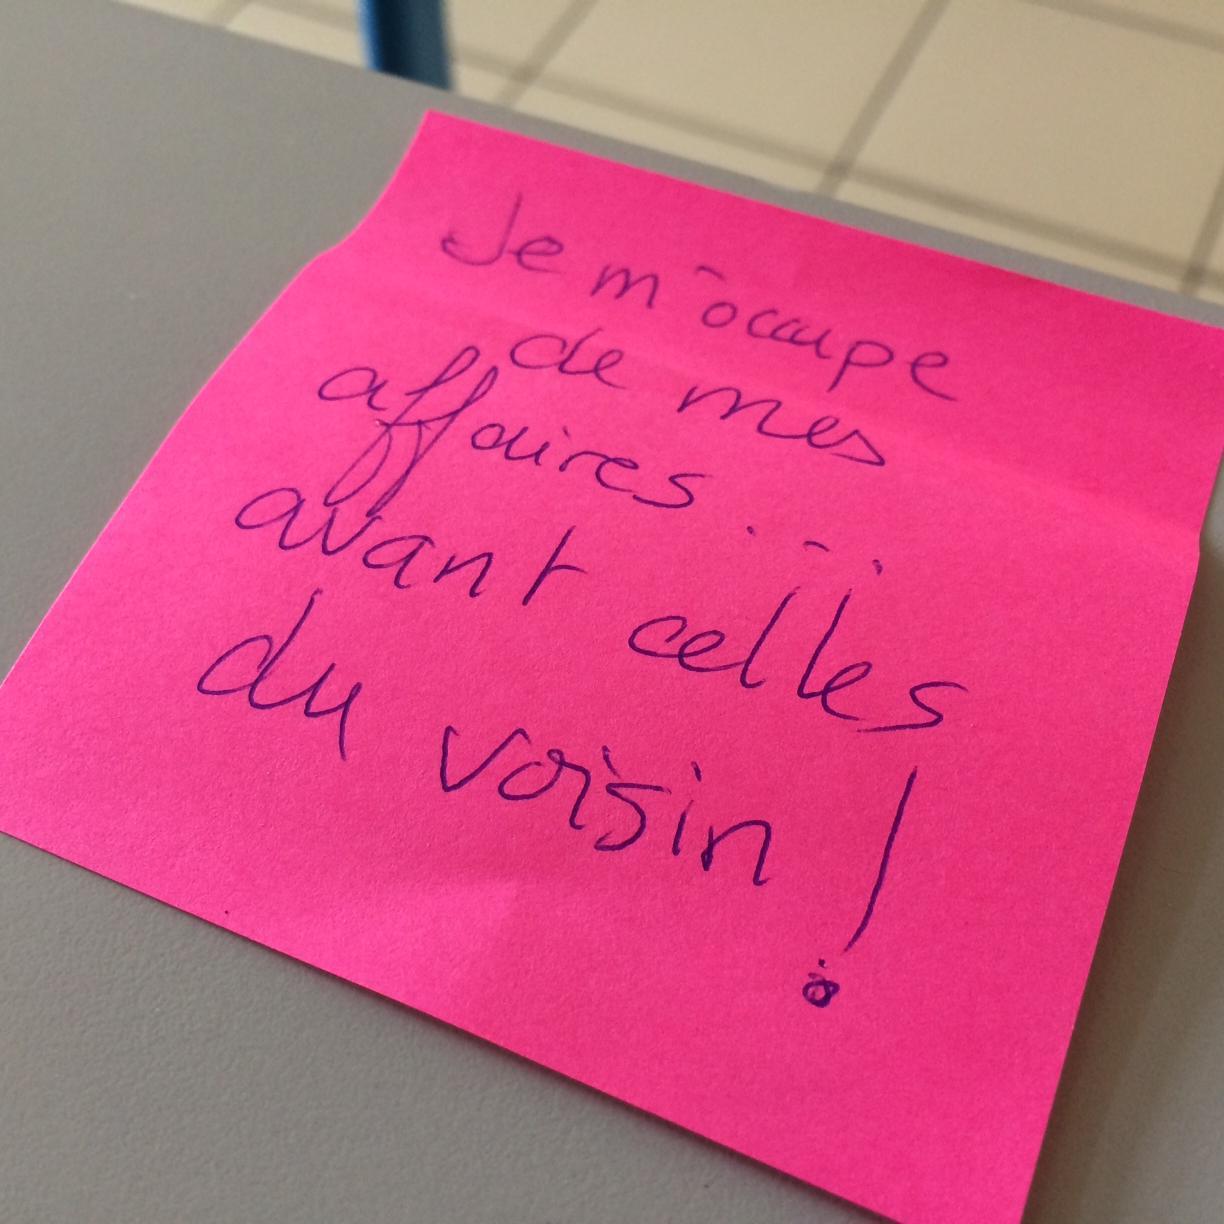 Je m'occupe
de mes
affaires...
avant celles
du voisin !